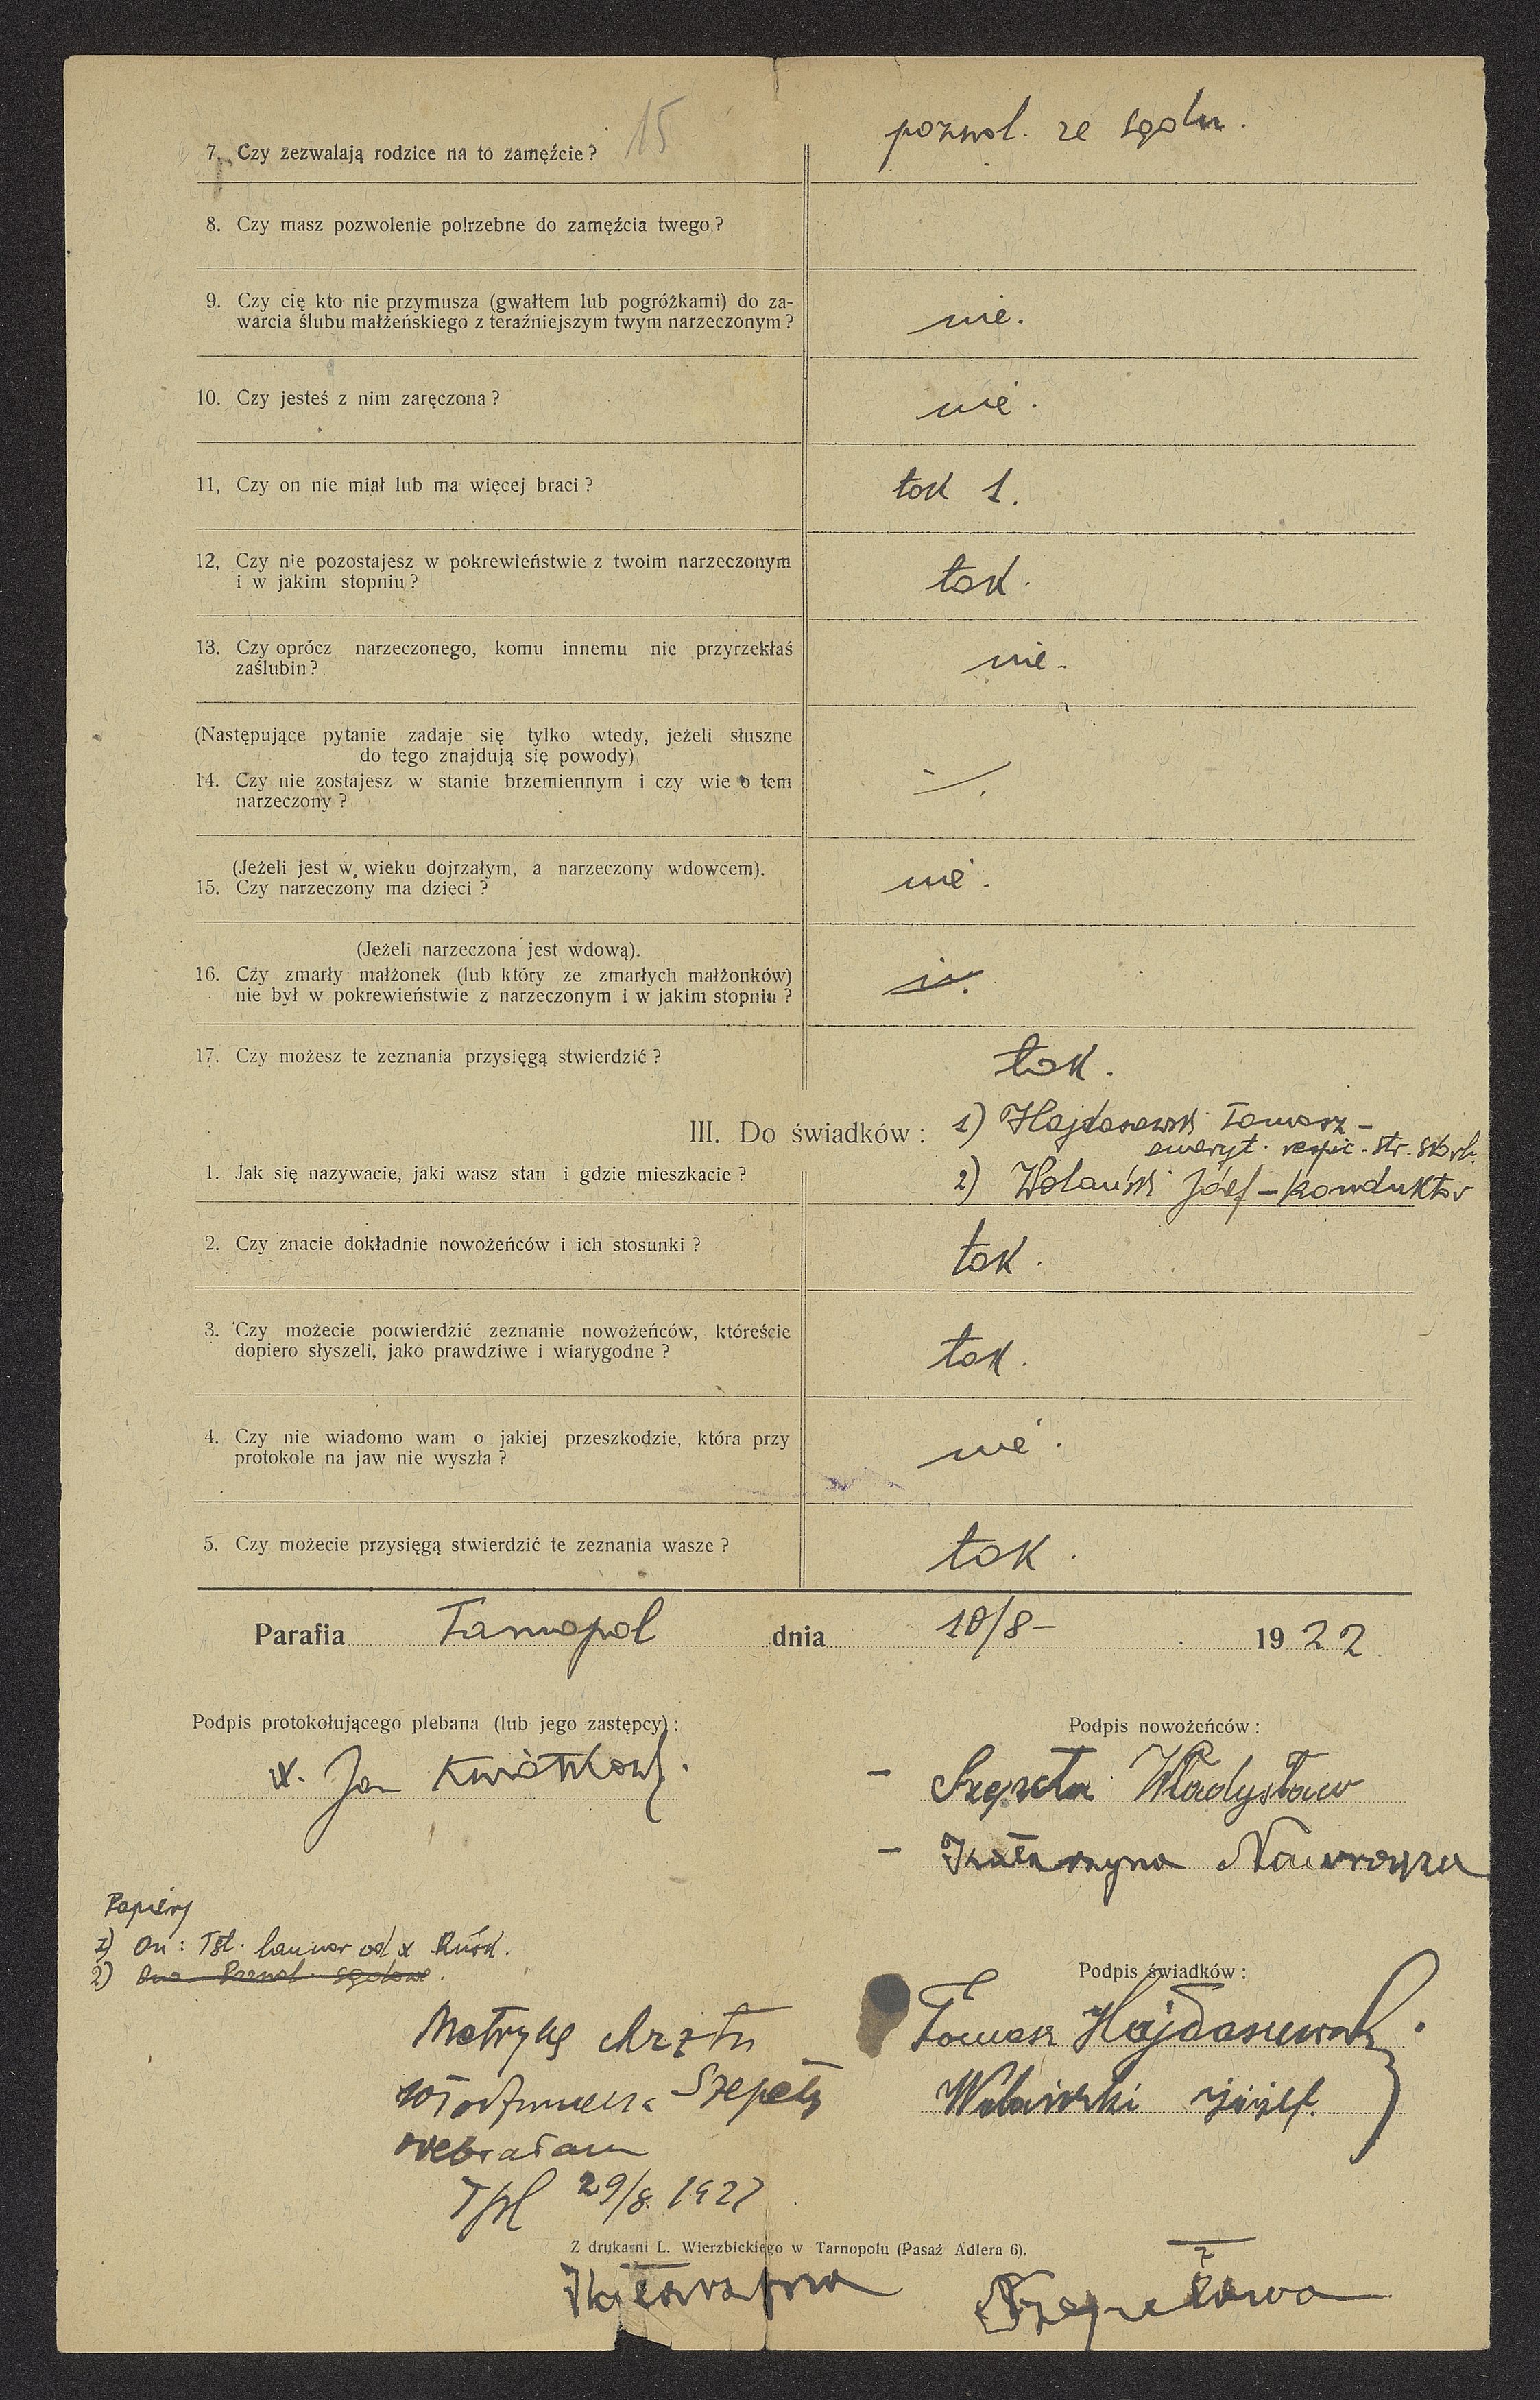 15
pozwol. ze sądu.
7. Czy zezwalają rodzice na to zamęźcie?
8. Czy masz pozwolenie potrzebne do zamęźcia twego?
9. Czy cię kto nie przymusza (gwałtem lub pogróżkami) do za-
warcia ślubu małżeńskiego z teraźniejszym twym narzeczonym?
nie.
10. Czy jesteś z nim zaręczona?
nie.
11, Czy on nie miał lub ma więcej braci?
tak 1.
12, Czy nie pozostajesz w pokrewieństwie z twoim narzeczonym
i w jakim stopniu?
tak.
13. Czy oprócz narzeczonego, komu innemu nie przyrzekłaś
zaślubin?
nie.
(Następujące pytanie zadaje się tylko wtedy, jeżeli słuszne
do tego znajdują się powody)
14. Czy nie zostajesz w stanie brzemiennym i czy wie o tem
narzeczony?
(Jeżeli jest w wieku dojrzałym, a narzeczony wdowcem).
15. Czy narzeczony ma dzieci?
nie.
(Jeżeli narzeczona jest wdową).
16. Czy zmarły małżonek (lub który ze zmarłych małżonków)
nie był w pokrewieństwie z narzeczonym i w jakim stopniu?
17. Czy możesz te zeznania przysięgą stwierdzić?
tak.
III. Do świadków:
1) Hajdasewski Tomasz –
emeryt. respic. str. skarb.
1. Jak się nazywacie, jaki wasz stan i gdzie mieszkacie?
2) Wolański Józef – konduktor
2. Czy znacie dokładnie nowożeńców i ich stosunki?
tak.
3. Czy możecie potwierdzić zeznanie nowożeńców, któreście
dopiero słyszeli, jako prawdziwe i wiarygodne?
tak.
4. Czy nie wiadomo wam o jakiej przeszkodzie, która przy
protokole na jaw nie wyszła?
nie.
5. Czy możecie przysięgą stwierdzić te zeznania wasze?
tak.
Parafia Tarnopol dnia 10/8 – 1922
Podpis protokołującego plebana (lub jego zastępcy):
x. Jan Kwiatkowski.
Podpis nowożeńców:
– Szepeta Władysław
– Katarzyna
Papiery
1) On: od x
2) Ona
Podpis świadków:
Tomasz Hajdasewski.
Wolański Józef.
Metrykę chrztu
Włodzimierza Szepety
odebrałam
Tpl 29/8. 1927
Z drukarni L. Wierzbickiego w Tarnopolu (Pasaż Adlera 6).
Katarzyna Szepetowa